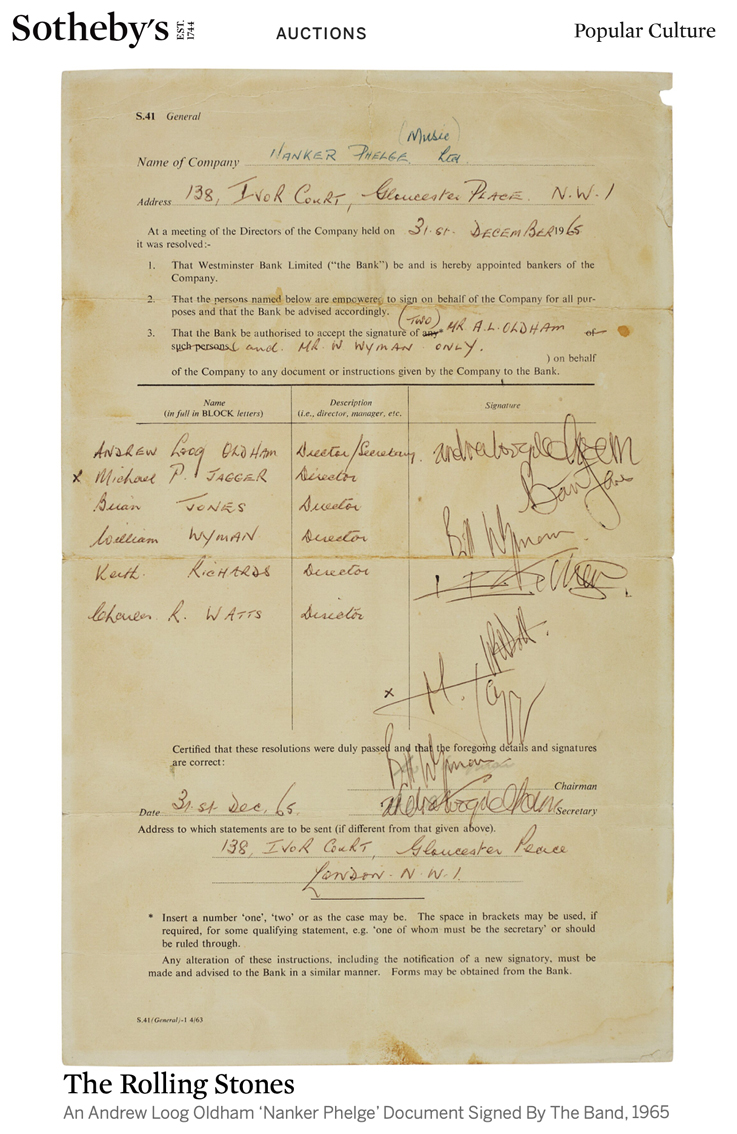 Sotheby's EST. 1744 AUCTIONS Popular Culture
S.41 General
(Music)
Name of Company NANKER PHELGE Ltd.
Address 138, IVOR COURT, Gloucester PLACE. N.W.1
At a meeting of the Directors of the Company held on 31.st. DECEMBER 1965
it was resolved:-
1. That Westminster Bank Limited ("the Bank") be and is hereby appointed bankers of the
Company.
2. That the persons named below are empowered to sign on behalf of the Company for all pur-
poses and that the Bank be advised accordingly.
3. That the Bank be authorised to accept the signature of any (TWO) MR A.L. OLDHAM of
such persons and. MR. W WYMAN ONLY.
) on behalf
of the Company to any document or instructions given by the Company to the Bank.
Name Description Signature
(in full in BLOCK letters) (i.e., director, manager, etc.
ANDREW Loog OLDHAM Director/Secretary. andrewloogoldham
x Michael P. JAGGER Director
Brian JONES Director Brian Jones
William WYMAN Director Bill Wyman
Keith. RICHARDS Director
Charles. R. WATTS Director
x M. Jagger
Certified that these resolutions were duly passed and that the foregoing details and signatures
are correct:
Bill Wyman
Chairman
Date 31.st Dec. 65. andrewloogoldham Secretary
Address to which statements are to be sent (if different from that given above).
138, IVOR COURT, Gloucester Peace
LONDON. N.W.1.
* Insert a number 'one', 'two' or as the case may be. The space in brackets may be used, if
required, for some qualifying statement, e.g. 'one of whom must be the secretary' or should
be ruled through.
Any alteration of these instructions, including the notification of a new signatory, must be
made and advised to the Bank in a similar manner. Forms may be obtained from the Bank.
S.41(General)-1 4/63
The Rolling Stones
An Andrew Loog Oldham 'Nanker Phelge' Document Signed By The Band, 1965